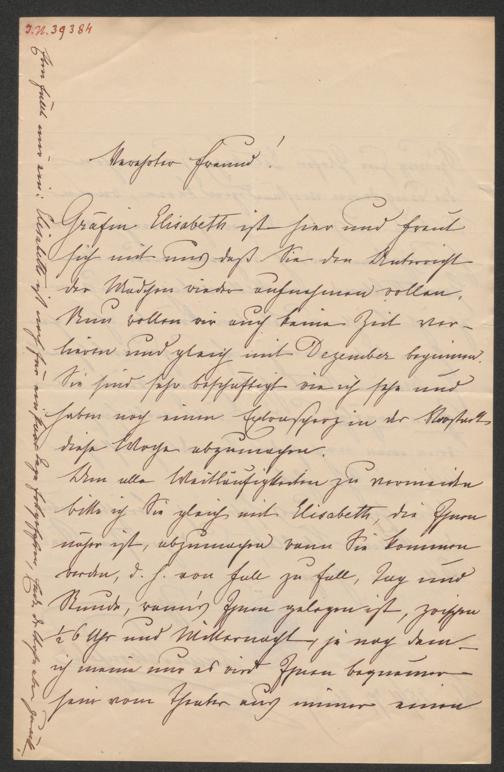 I.N. 39384
Verehrter Freund!
Gräfin Elisabeth ist hier und freut
sich mit uns daß Sie den Unterricht
der Mädchen wieder aufnehmen wollen.
Nun wollen wir auch keine Zeit ver-
lieren und gleich mit Dezember beginnen.
Sie sind sehr beschäftigt wie ich sehe und
haben noch einen in der Vorstadt
diese Woche abzumachen.
Um alle Weitläufigkeiten zu vermeiden
bitte ich Sie gleich mit Elisabeth, die Ihnen
näher ist, abzumachen wann Sie kommen
werden, d. h. von Fall zu Fall, Tag und
Stunde, wann's Ihnen gelegen ist, zwischen
½6 Uhr und Mitternacht, je nach dem –
ich meine nur es wird Ihnen bequemer
sein vom Theater aus immer einen
Eben fällt mir ein: Elisabeth ist noch für ein paar Tage Ende der Woche